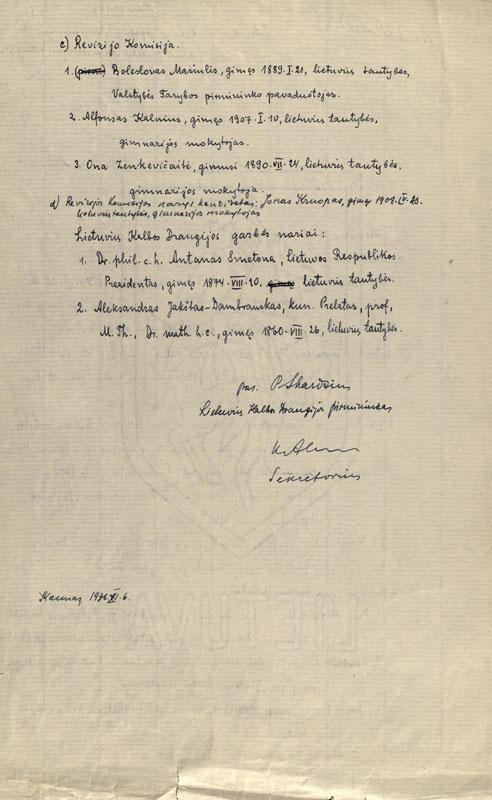 c) Revizijo Komisija.
1. Boleslovas Masiulis, gimęs 1889.I.21, lietuvių tautybės,
Valstybės Tarybos pirmininko pavaduotojas.
2. Alfonsas Kalnius, gimęs 1907.I.10, lietuvių tautybės,
gimnazijos mokytojas.
3. Ona Zenkevičaitė, gimusi 1890.VII.24, lietuvių tautybės,
gimnazijos mokytoja.
d) Revizijos komisijos narys kandidatas: Jonas Kruopas, gimęs 1908.IV.
lietuvių tautybės, gimnazijos mokytojas
Lietuvių Kalbos Draugijos garbės nariai:
1. Dr. phil. c. h. Antanas Smetona, Lietuvos Respublikos
Prezidentas, gimęs 1874.VIII.10, lietuvių tautybės.
2. Aleksandras Jakštas-Dambrauskas, kun. Prelatas, prof,
M. Th., Dr. math. h. c., gimęs 1860.VIII.26, lietuvių tautybės.
pas. P Skardžius
Lietuvių Kalbos Draugijos pirmininkas
Sekretorius
Kaunas, 1936.XI.6.